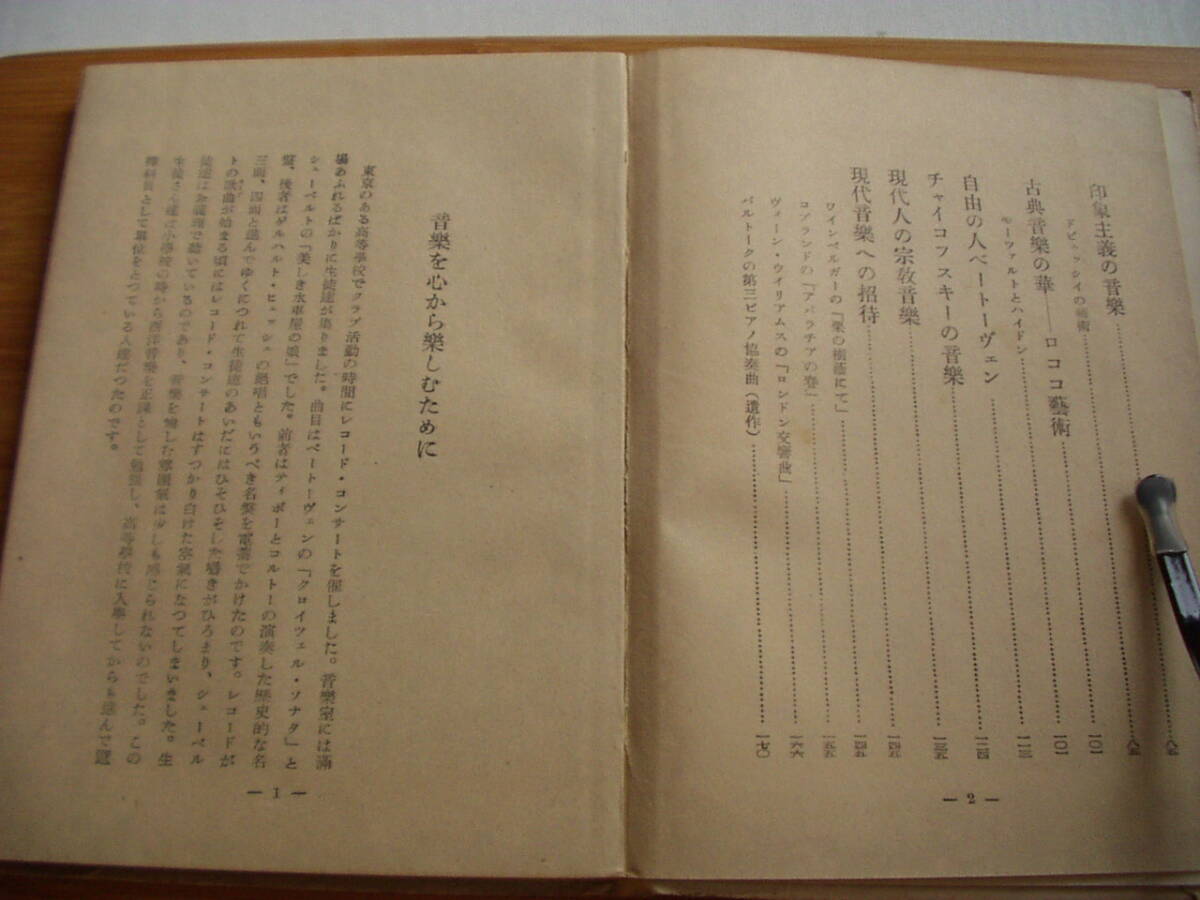 印象主義の音樂……八五
ドビュッシイの藝術……八五
古典音樂の華——ロココ藝術……一〇一
モーツァルトとハイドン……一〇一
自由の人ベートーヴェン……一一三
チャイコフスキーの音樂……一二四
現代人の宗教音樂……一三五
現代音樂への招待……一四五
ワインベルガーの「栗の樹蔭にて」……一四五
コプランドの「アパラチアの春」……一五五
ヴォーン・ウイリアムスの「ロンドン交響曲」……一六六
バルトークの第三ピアノ協奏曲(遺作)……一七〇
— 2 —
音樂を心から樂しむために
東京のある高等學校でクラブ活動の時間にレコード・コンサートを催しました。音樂室には滿
場あふれるばかりに生徒達が集りました。曲目はベートーヴェンの「クロイツェル・ソナタ」と
シューベルトの「美しき水車屋の娘」でした。前者はティボーとコルトーの演奏した歴史的な名
盤、後者はゲルハルト・ヒュッシュの絶唱ともいうべき名盤を電蓄でかけたのです。レコードが
三面、四面と進んでゆくにつれて生徒達のあいだにはひそひそした囁きがひろまり、シューベル
トの歌曲が始まる頃にはレコード・コンサートはすつかり白けた空氣になつてしまいました。生
徒達はお義理で聽いているのであり、音樂を愉した雰圍氣は少しも感じられないのでした。この
生徒さん達は小學校の時から西洋音樂を正課として勉強し、高等學校に入學してからも進んで選
擇科目として單位をとつている人達だつたのです。
— 1 —